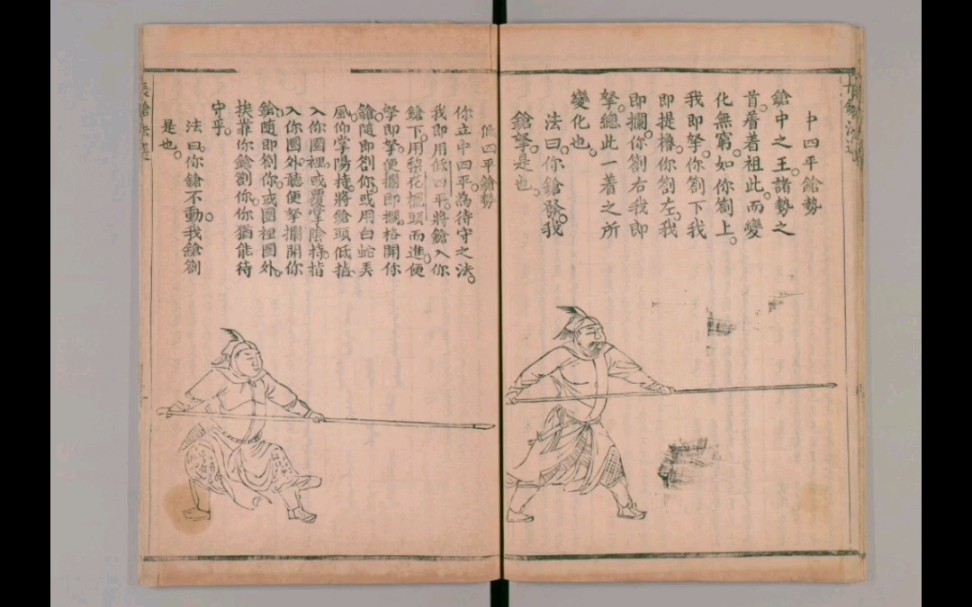 中四平鎗勢
鎗中之王諸勢之
首着着祖此。而變
化無窮。如你劄上。
我即拏。你劄下我
即提擼。你劄左。我
即攔。你劄右我即
拏。總此一着之所
變化也。
法曰你鎗發。我
鎗拏是也。
低四平鎗勢
你立中四平。為待守之法。
我即用低四平。將鎗入你
鎗下。用梨花擺頭而進。便
拏即拏。便攔即攔。格開你
鎗。隨即劄你。或用白蛇弄
風。仰掌陽持將鎗頭低指
入你圈裡。或覆掌陰持。指
入你圈外。聽便拏攔開你
鎗。隨即劄你。或圈裡圈外。
挨靠你鎗劄你。你猶能待
守乎。
法曰。你鎗不動。我鎗劄
是也。